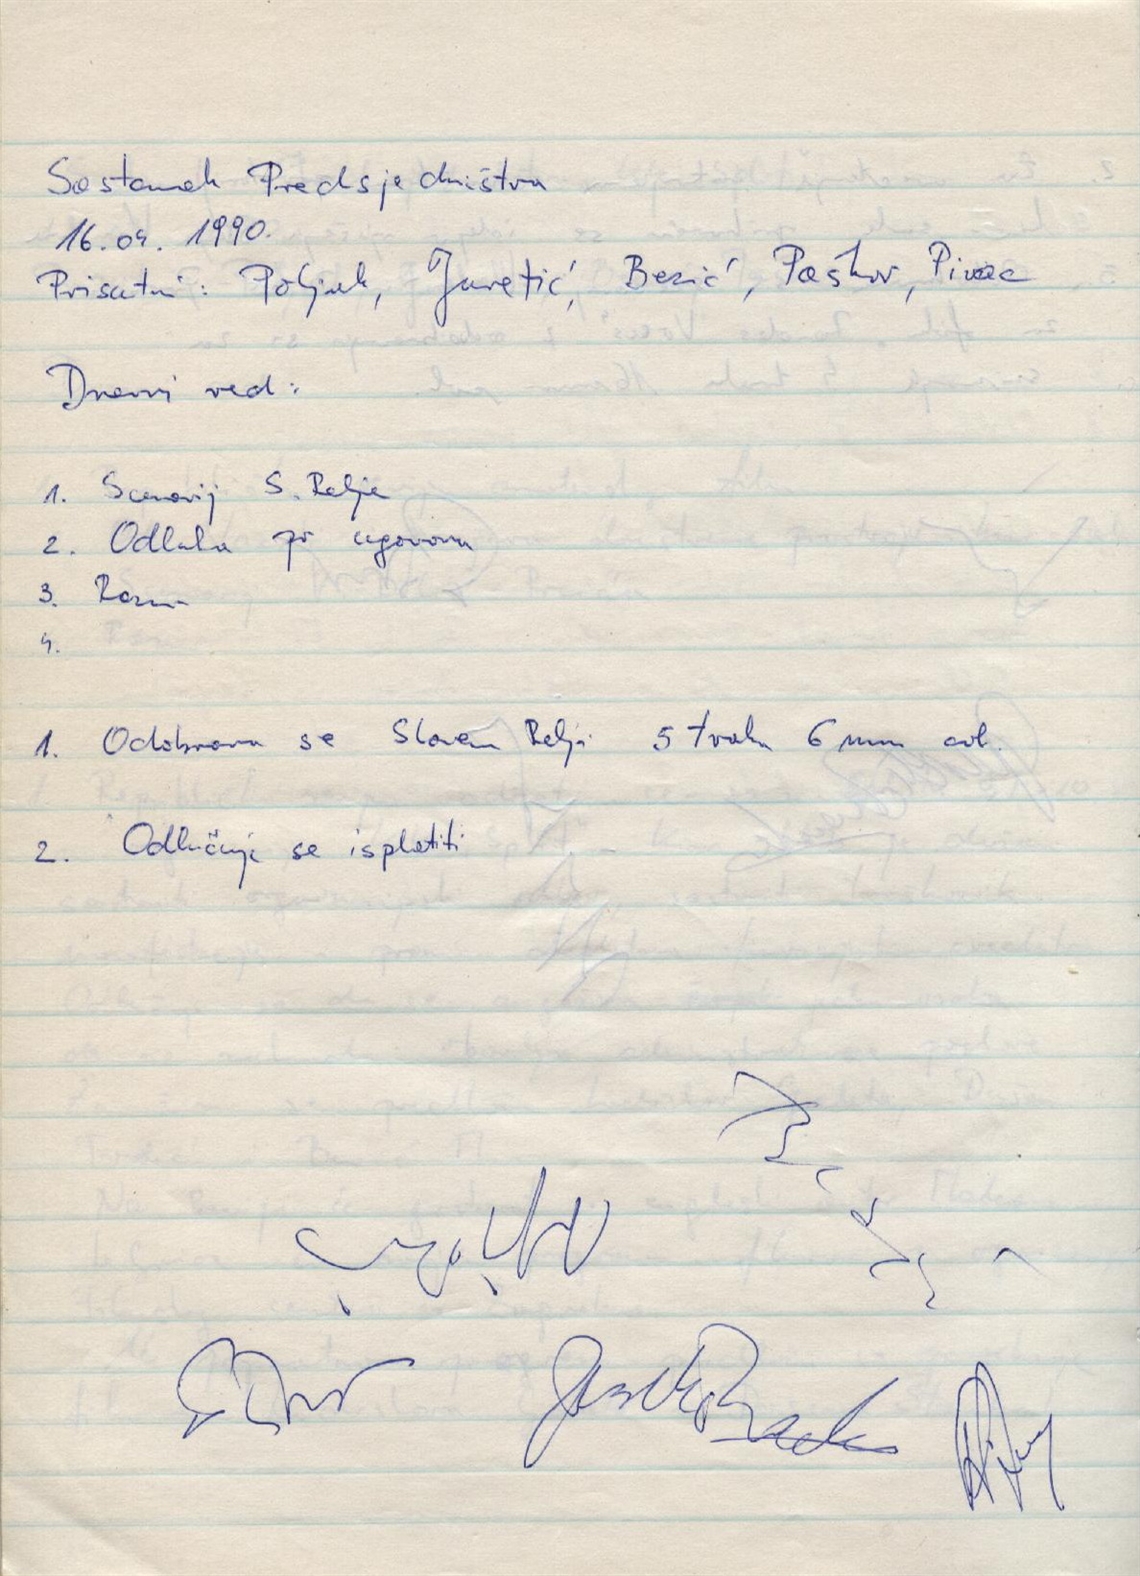 Sastanak Predsjedništva
16.04. 1990.
Prisutni: Poljak, Juretić, Bezić, Paškov, Pivac
Dnevni red:
1. Scenarij S. Relje
2. Odluka po ugovoru
3. Razno
4.
1. Odobrava se Slaven Relji 5 traka 6 mm col.
2. Odlučuje se isplatiti